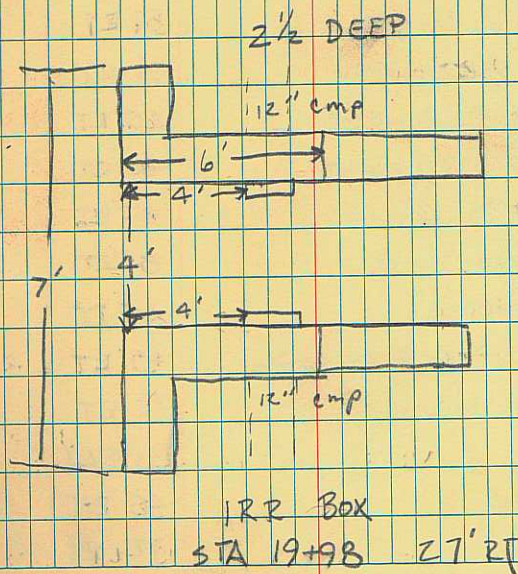 2'½ DEEP
12" cmp
6'
4'
4'
7'
4'
12" cmp
IRR BOX
STA 19+98 27' RT